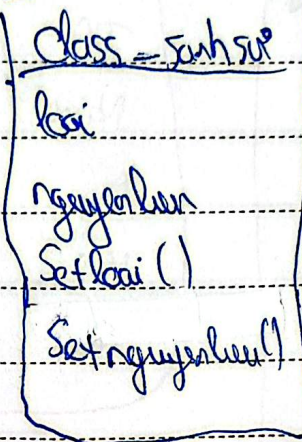 class - sanh sui
loai
nguyenlieu
Setloai ()
Setnguyenlieu()